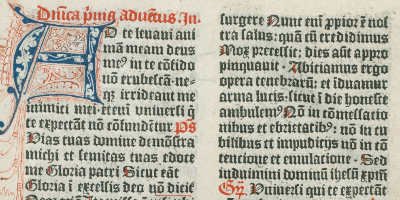 Dnica prima aduentus. In.
D te leuaui ani
mã meam deus
me⁹ in te cõfido
nõ erubescã·ne-
qȝ irrideant me
inimici mei·etenĩ vniuersi q̃
te expectãt nõ cõfundẽtur Ps
Vias tuas domine demõstra
michi et semitas tuas edoce
me Gloria patri Sicut erãt
Gloria ĩ excelsis deo nõ dicit̃
surgere Nunc enĩ ppior ẽ nos
tra salus: quã cũ credidimus
Nox precessit; dies aũt appro
pinquauit · Abiciamus ergo
opera tenebrarũ; et ĩduamur
arma lucis·sicut ĩ die honeste
ambulem⁹ Nõ in cõmessatio
nibus et ebrietatibȝ: nõ in cu
bilibus et impudicijs nõ in cõ
tencione et emulacione · Sed
induimini dominũ ihesũ xp̃m
Gr̃. Vniuersi qui te expectãt